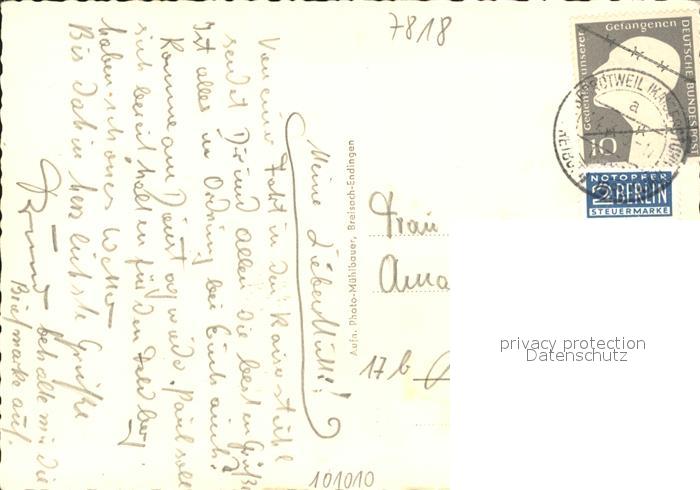 7818
Meine Liebe Mutti!
Von einer Fahrt in den Kaiserstuhl
sendet Dir und allen die besten Grüße
Ist alles in Ordnung bei Euch auch?
Komme am Dienstag wieder. Paul soll
sich bereit halten für den Feldberg
haben schönes Wetter
Bis dahin herzlichste Grüße
behalte mir die
Briefmarke auf.
Aufn. Photo-Mühlbauer, Breisach-Endingen
Gedenket unserer Gefangenen
DEUTSCHE BUNDESPOST
10
a
NOTOPFER
2 BERLIN
STEUERMARKE
Frau
17b
privacy protection
Datenschutz
101010